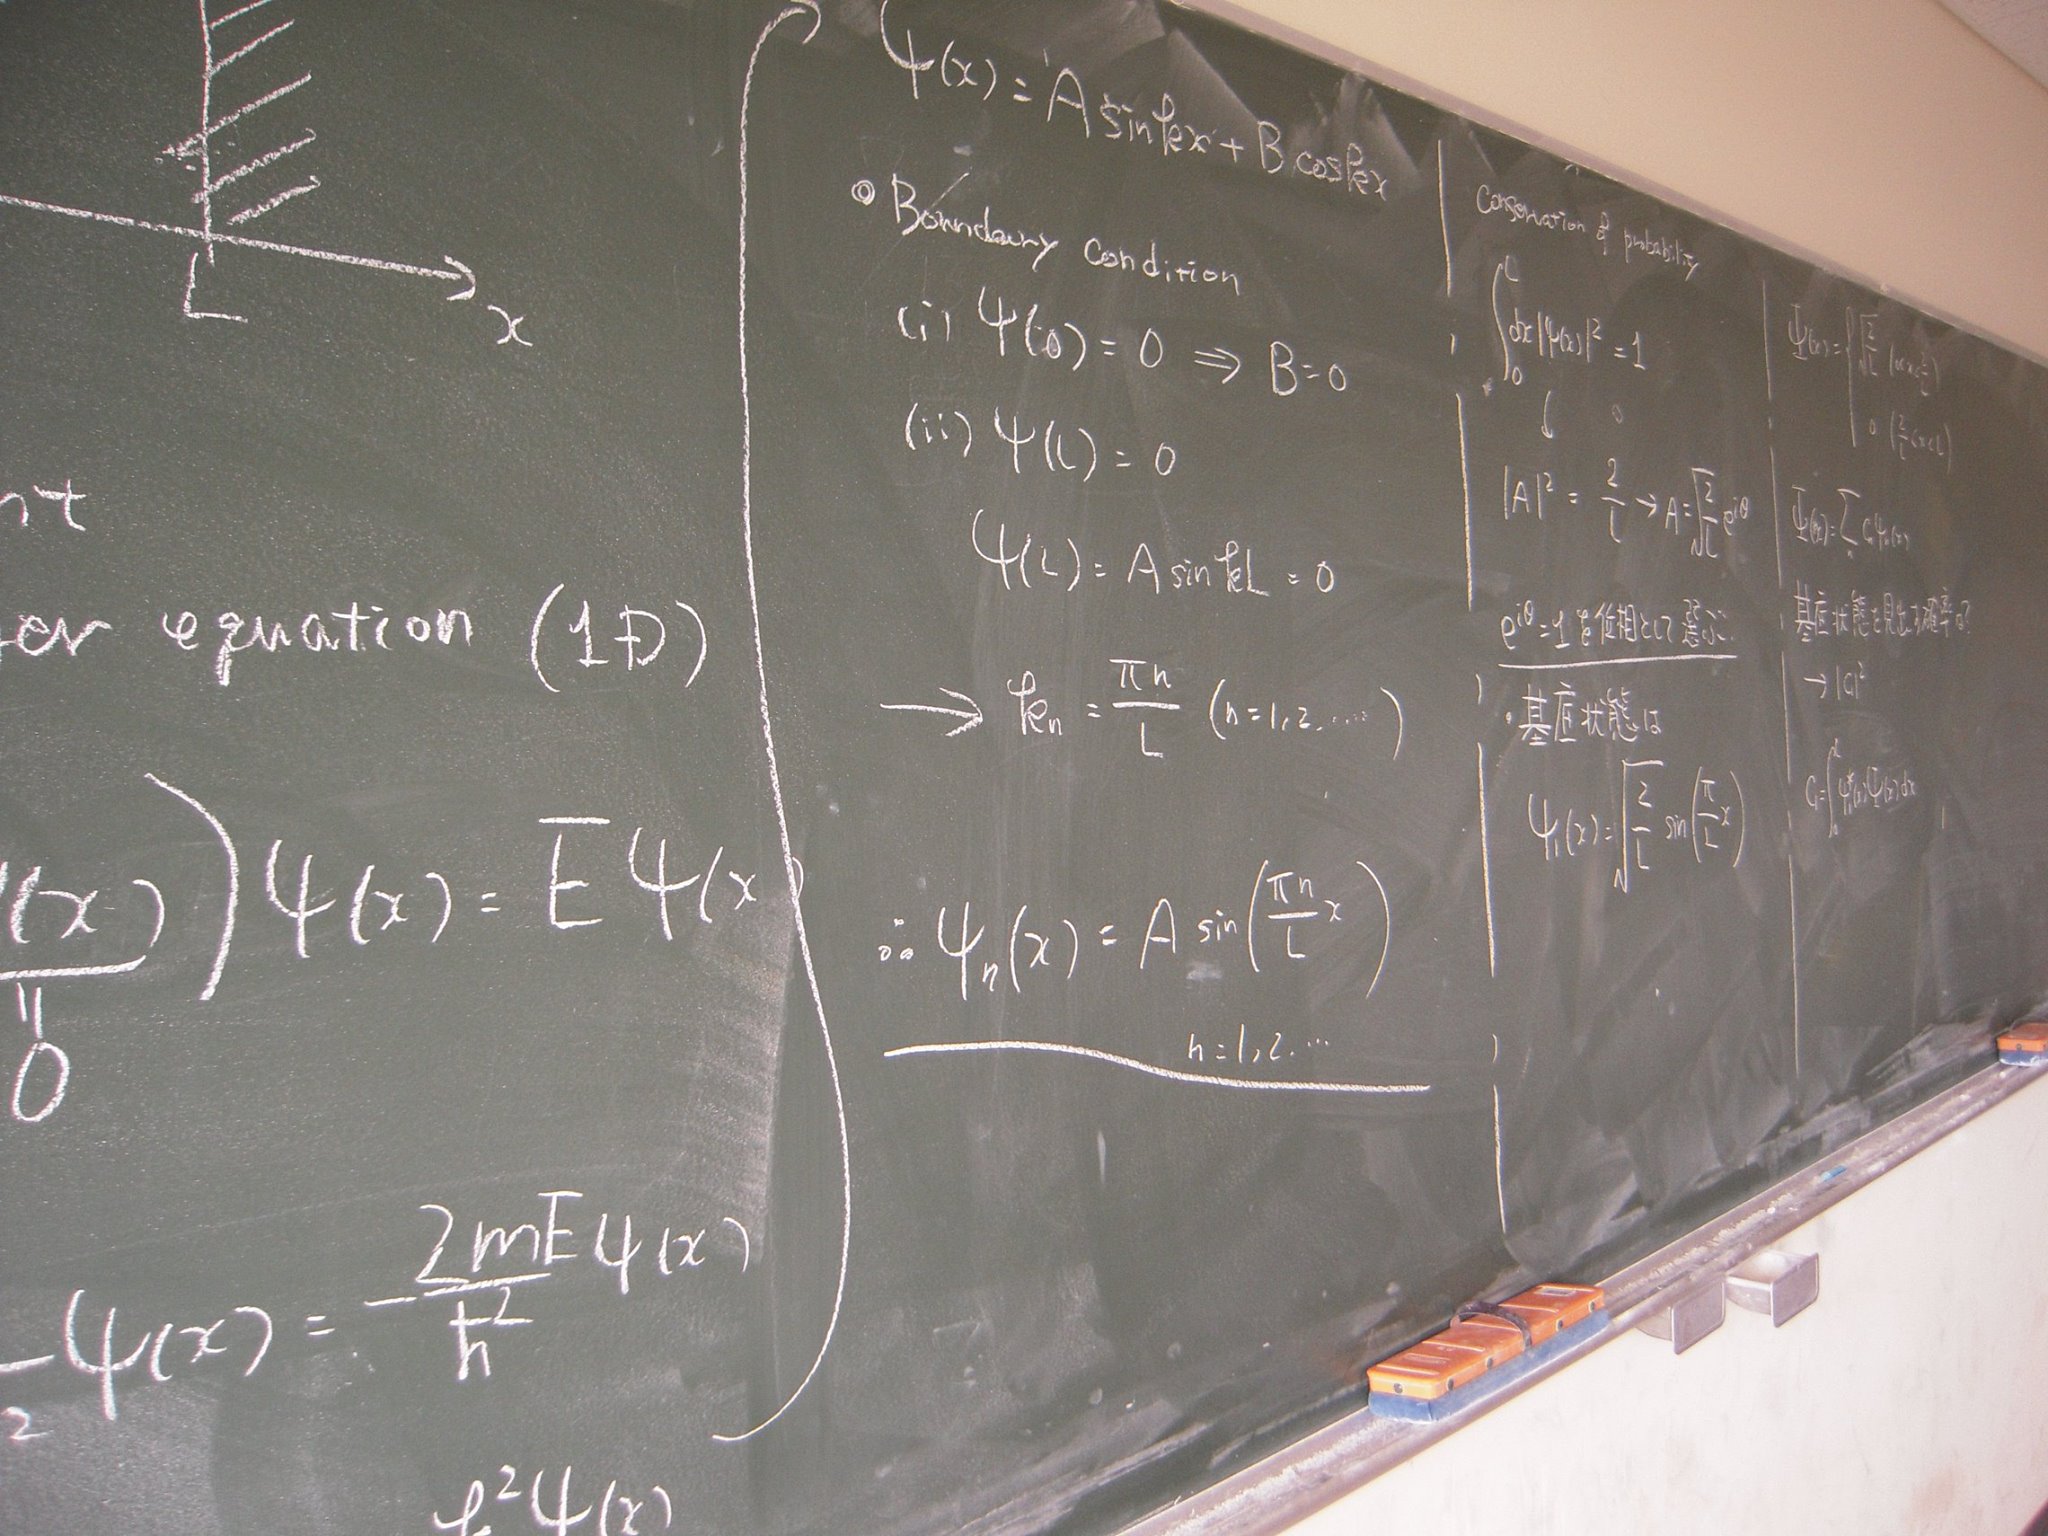 L
x
equation (1D)
(x) ) ψ(x) = E ψ(x
=
0
ψ(x) = - 2mE/ħ² ψ(x)
2
k²ψ(x)
ψ(x) = A sin kx + B cos kx
◎ Boundary condition
(i) ψ(0) = 0 ⇒ B = 0
(ii) ψ(L) = 0
ψ(L) = A sin kL = 0
→ kₙ = πn/L (n = 1, 2, ....)
∴ ψₙ(x) = A sin(πn/L x)
n = 1, 2, ...
Conservation of probability
∫₀ᴸ dx |ψ(x)|² = 1
↓
|A|² = 2/L → A = √(2/L) e^{iθ}
e^{iθ} = 1 を位相として選ぶ.
・基底状態は
ψ₁(x) = √(2/L) sin(π/L x)
Ψ(x) = { √(2/L)
0
Ψ(x) = Σ Cₙψₙ(x)
基底状態を見出す確率は?
→ |C₁|²
C₁ = ∫₀ᴸ ψ₁*(x) Ψ(x) dx